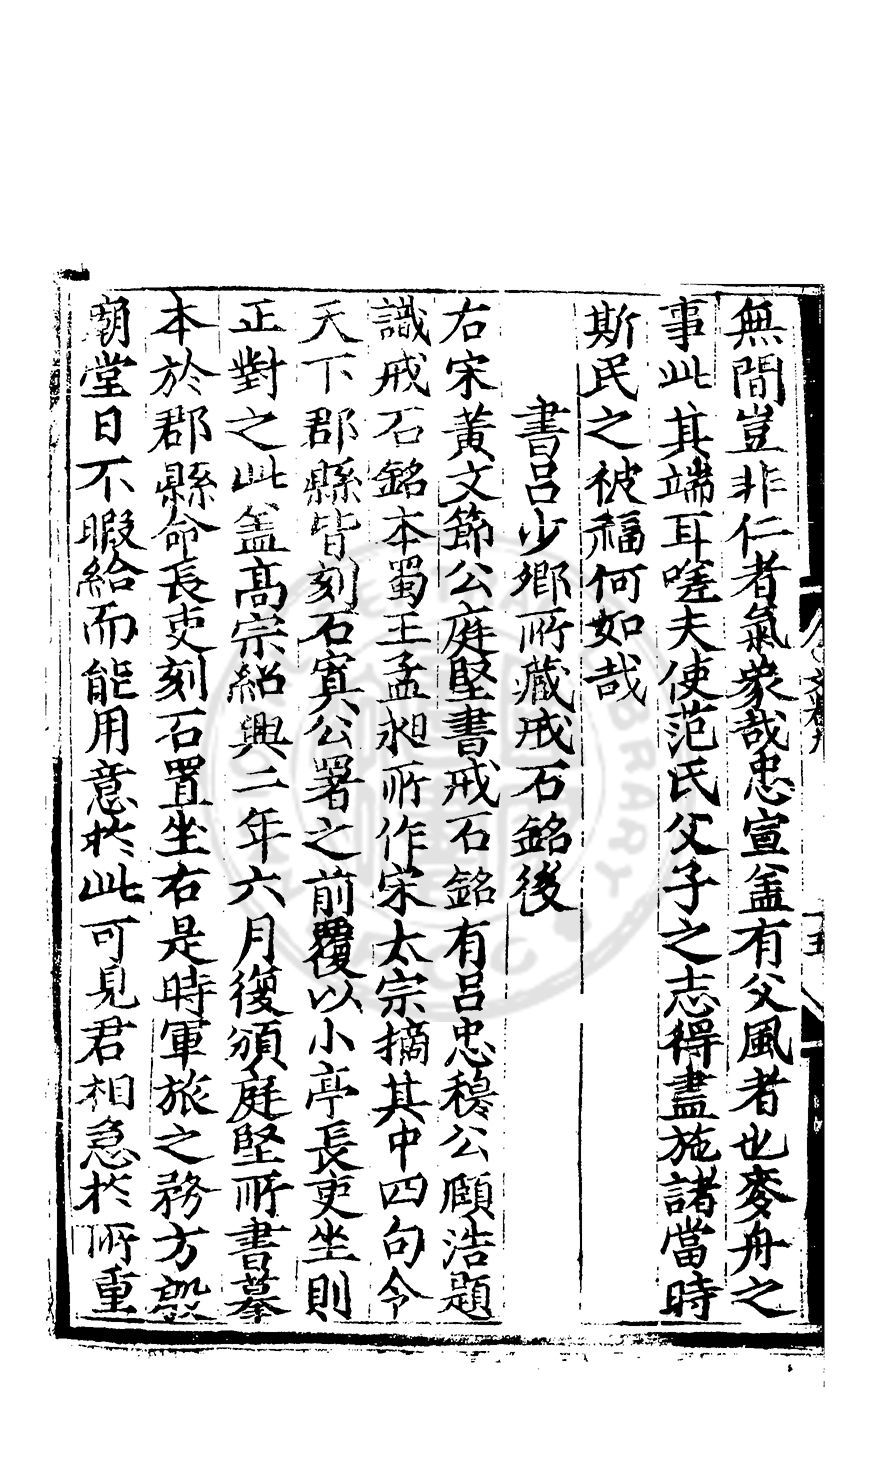 無間豈非仁者氣象哉忠宣盖有父風者也麥舟之
事此其端耳嗟夫使范氏父子之志得盡施諸當時
斯民之被福何如哉
書呂少卿所藏戒石銘後
右宋黃文節公庭堅書戒石銘有呂忠穆公頤浩題
識戒石銘本蜀王孟昶所作宋太宗摘其中四句令
天下郡縣皆刻石寘公署之前覆以小亭長吏坐則
正對之此盖高宗紹興二年六月復頒庭堅所書摹
本於郡縣命長吏刻石置坐右是時軍旅之務方殷
廟堂日不暇給而能用意於此可見君相急於所重